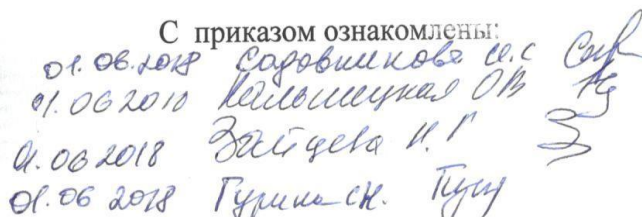 С приказом ознакомлены:
01.06.2018 Садовникова И.С
01.06 2018 Кальницкая ОВ
01.06 2018 Зайцева Н.Г
01.06 2018 Гурина С.Н.